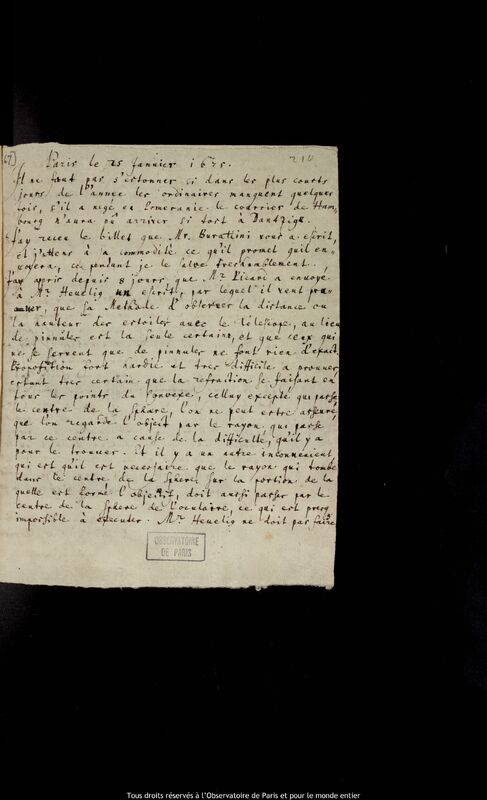 67) Paris le 25 Janvier 1675. 210
Il ne faut pas s'estonner si dans les plus courts
jours de l'année les ordinaires manquent quelques
fois, s'il a negé en Pomeranie. le courrier de Ham,
bourg n'aura pû arriver si tost à Dantzigk.
J'ay receu le billet que Mr. Burattini vous a escrit,
et j'attens à sa commodité ce qu'il promet qu'il en,
voyera, cependant je le salue treshumblement.
J'ay apris depuis 8 jours, que Mr. Picard a envoyé
à Mr. Hevelig un escrit, par lequel il veut prou,
uver, que sa Methode d'observer la distance ou
la hauteur des estoiles avec le Telescope, au lieu
de pinnules est la seule certaine, et que ceux qui
ne se servent que de pinnules ne font rien d'exact.
Proposition fort hardie et tres difficile a prouver
estant tres certain que la refraction se faisant en
tous les points du Convexe, celluy excepté qui passe
le centre de la Sphere, l'on ne peut estre asseuré
que l'on regarde l'object par le rayon qui passe
par ce centre a cause de la difficulté, qu'il y a
pour le trouver. Et il y a un autre inconvenient,
qui est qu'il est necessaire que le rayon qui tombe
dans le centre de la Sphere sur la portion de la
quelle est formé l'objectif, doit aussi passer par le
centre de la Sphere de l'oculaire, ce qui est presq
impossible à executer. Mr. Hevelig ne doit pas faire
OBSERVATOIRE
DE PARIS
Tous droits réservés à l'Observatoire de Paris et pour le monde entier